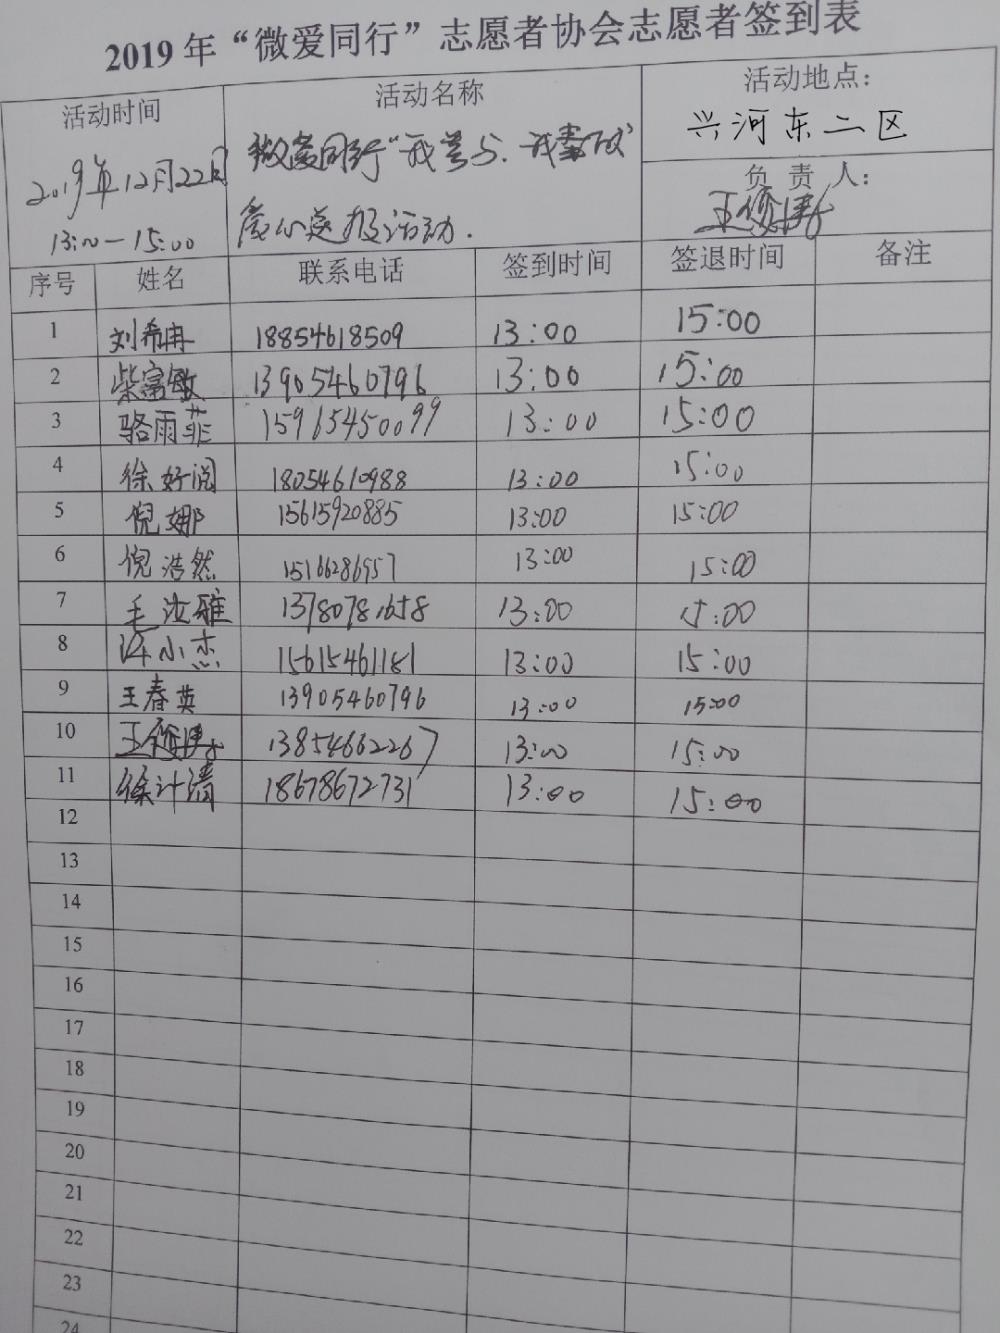 2019年“微爱同行”志愿者协会志愿者签到表
活动时间 活动名称 活动地点：
2019年12月22日 微爱同行“我参与、我奉献” 兴河东二区
13:00—15:00 爱心 活动. 负 责 人：
序号 姓名 联系电话 签到时间 签退时间 备注
1 刘希冉 18854618509 13:00 15:00
2 柴富敏 13905460796 13:00 15:00
3 骆雨菲 15965450099 13:00 15:00
4 徐好阅 18054610988 13:00 15:00
5 倪娜 15615920885 13:00 15:00
6 倪浩然 15166286957 13:00 15:00
7 毛汝雅 13780781658 13:00 15:00
8 许小杰 15615461181 13:00 15:00
9 王春英 13905460796 13:00 15:00
10 13854662267 13:00 15:00
11 徐计清 18678672731 13:00 15:00
12
13
14
15
16
17
18
19
20
21
22
23
24